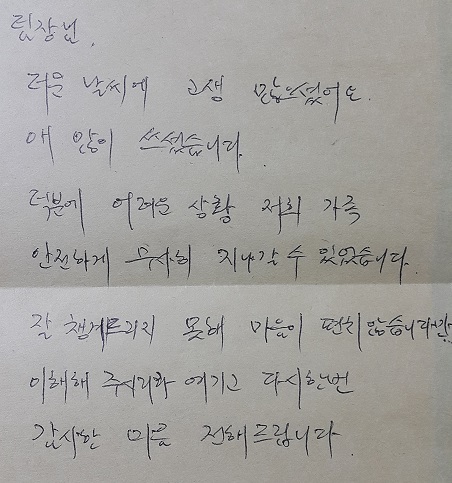 팀장님,
더운 날씨에 고생 많으셨어요.
애 많이 쓰셨습니다.
덕분에 어려운 상황 저희 가족
안전하게 무사히 지나갈 수 있었습니다.
잘 챙겨드리지 못해 마음이 편치 않습니다만
이해해 주시리라 여기고 다시한번
감사한 마음 전해드립니다.